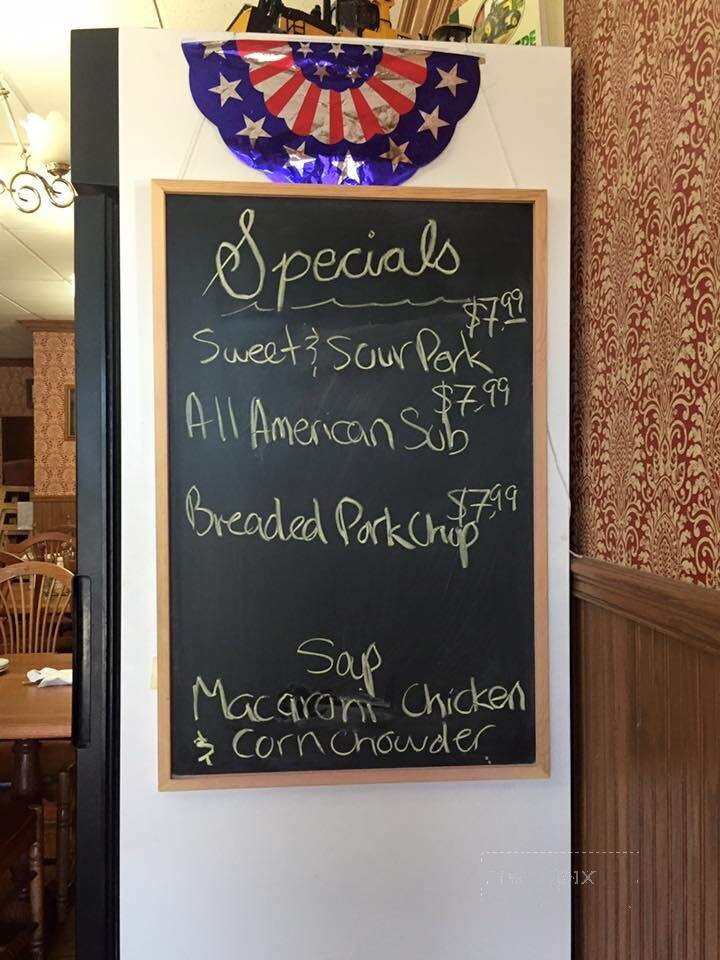 Specials
$7.99
Sweet & Sour Pork
$7.99
All American Sub
$7.99
Breaded Pork Chop
Soup
Macaroni Chicken
& Corn Chowder